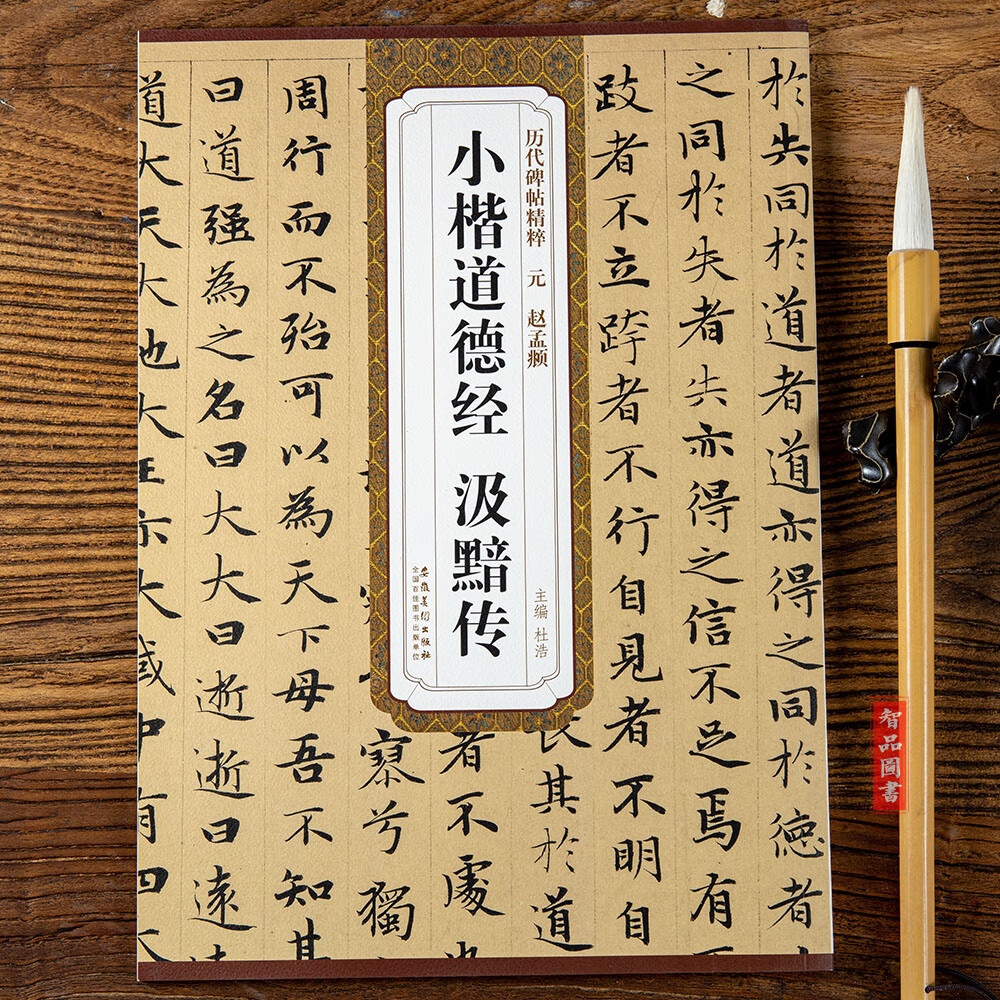 於失同於道者道亦得之同於德者
之同於失者失亦得之信不足焉有
跂者不立跨者不行自見者不明自
長其於道
者不處也
历代碑帖精粹 元 赵孟頫
主编 杜浩
小楷道德经 汲黯传
安徽美術出版社
全国百佳图书出版单位
寥兮獨
周行而不殆可以為天下母吾不知其
曰道强為之名曰大大曰逝逝曰遠
道大天大地大王亦大域中有四大
智品圖書